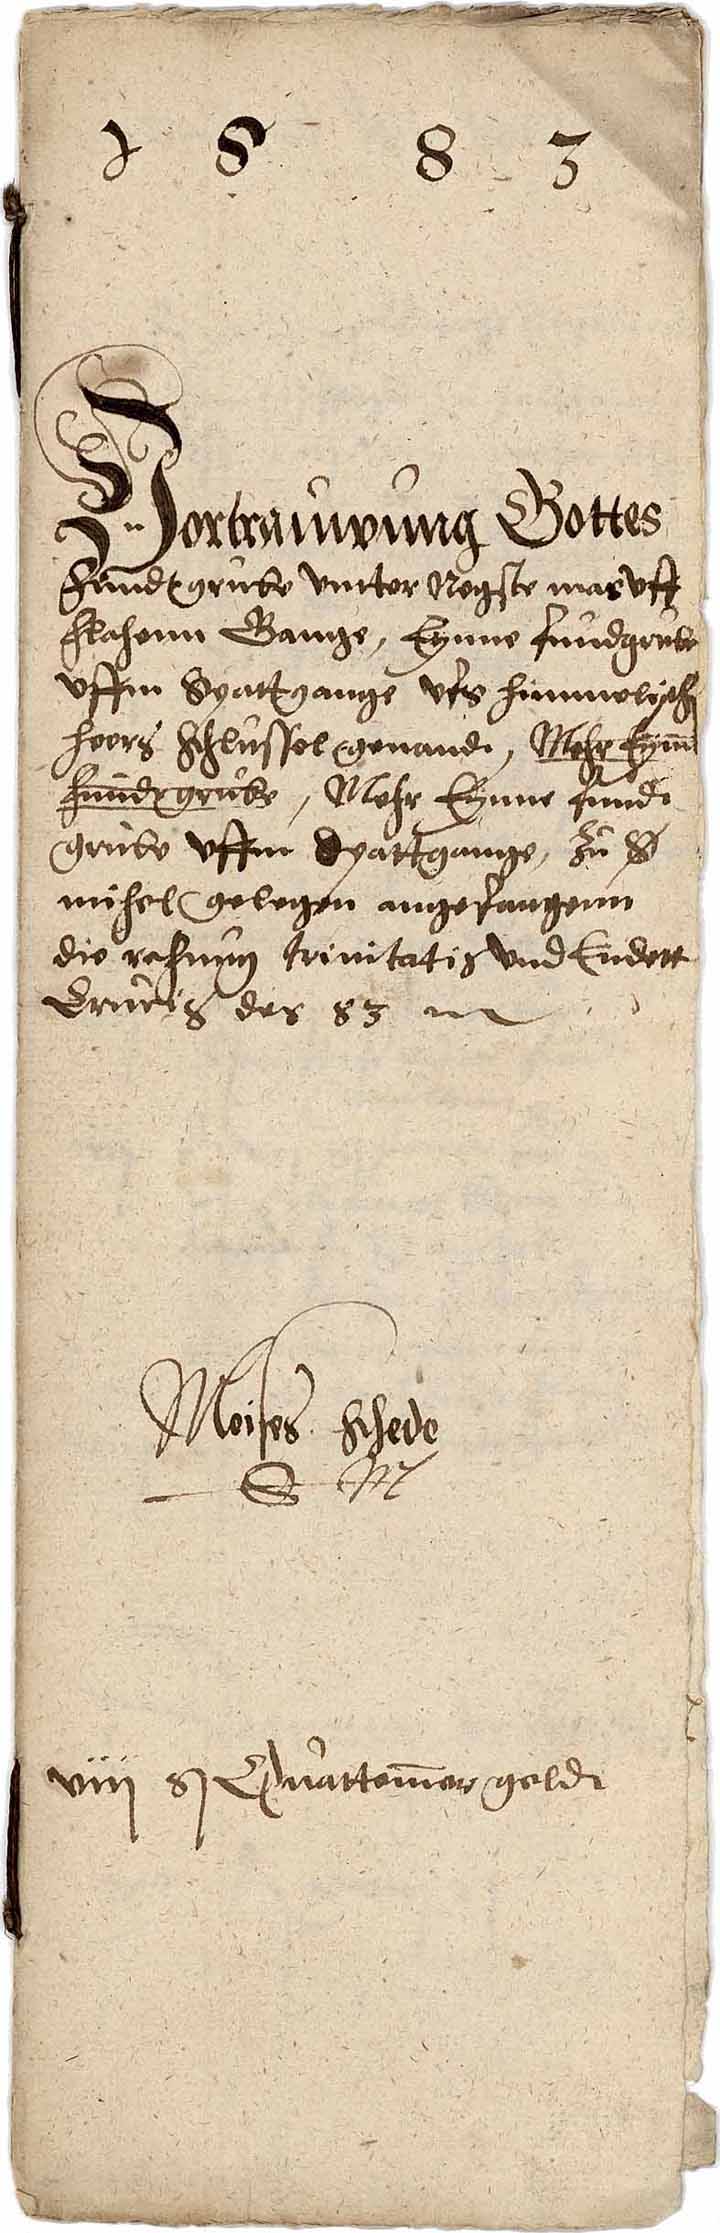 1 5 8 3
Zu Vortrauwung Gottes
fundtgrube vnnter Negste mas vff
flachenn Gange, Eynne fundgrube
vffm Spattgange vfs himmelisch
heers schlussel genandt, Mehr Eynn
fundtgrube, Mehr Eynne fundt
grube vffm Spattgange, Zu S
michel gelegen angefangenn
die rechnung trinitatis vnd Endett
Crucis des 83
Moises Schede
S M
viij gl Quattemer geldt